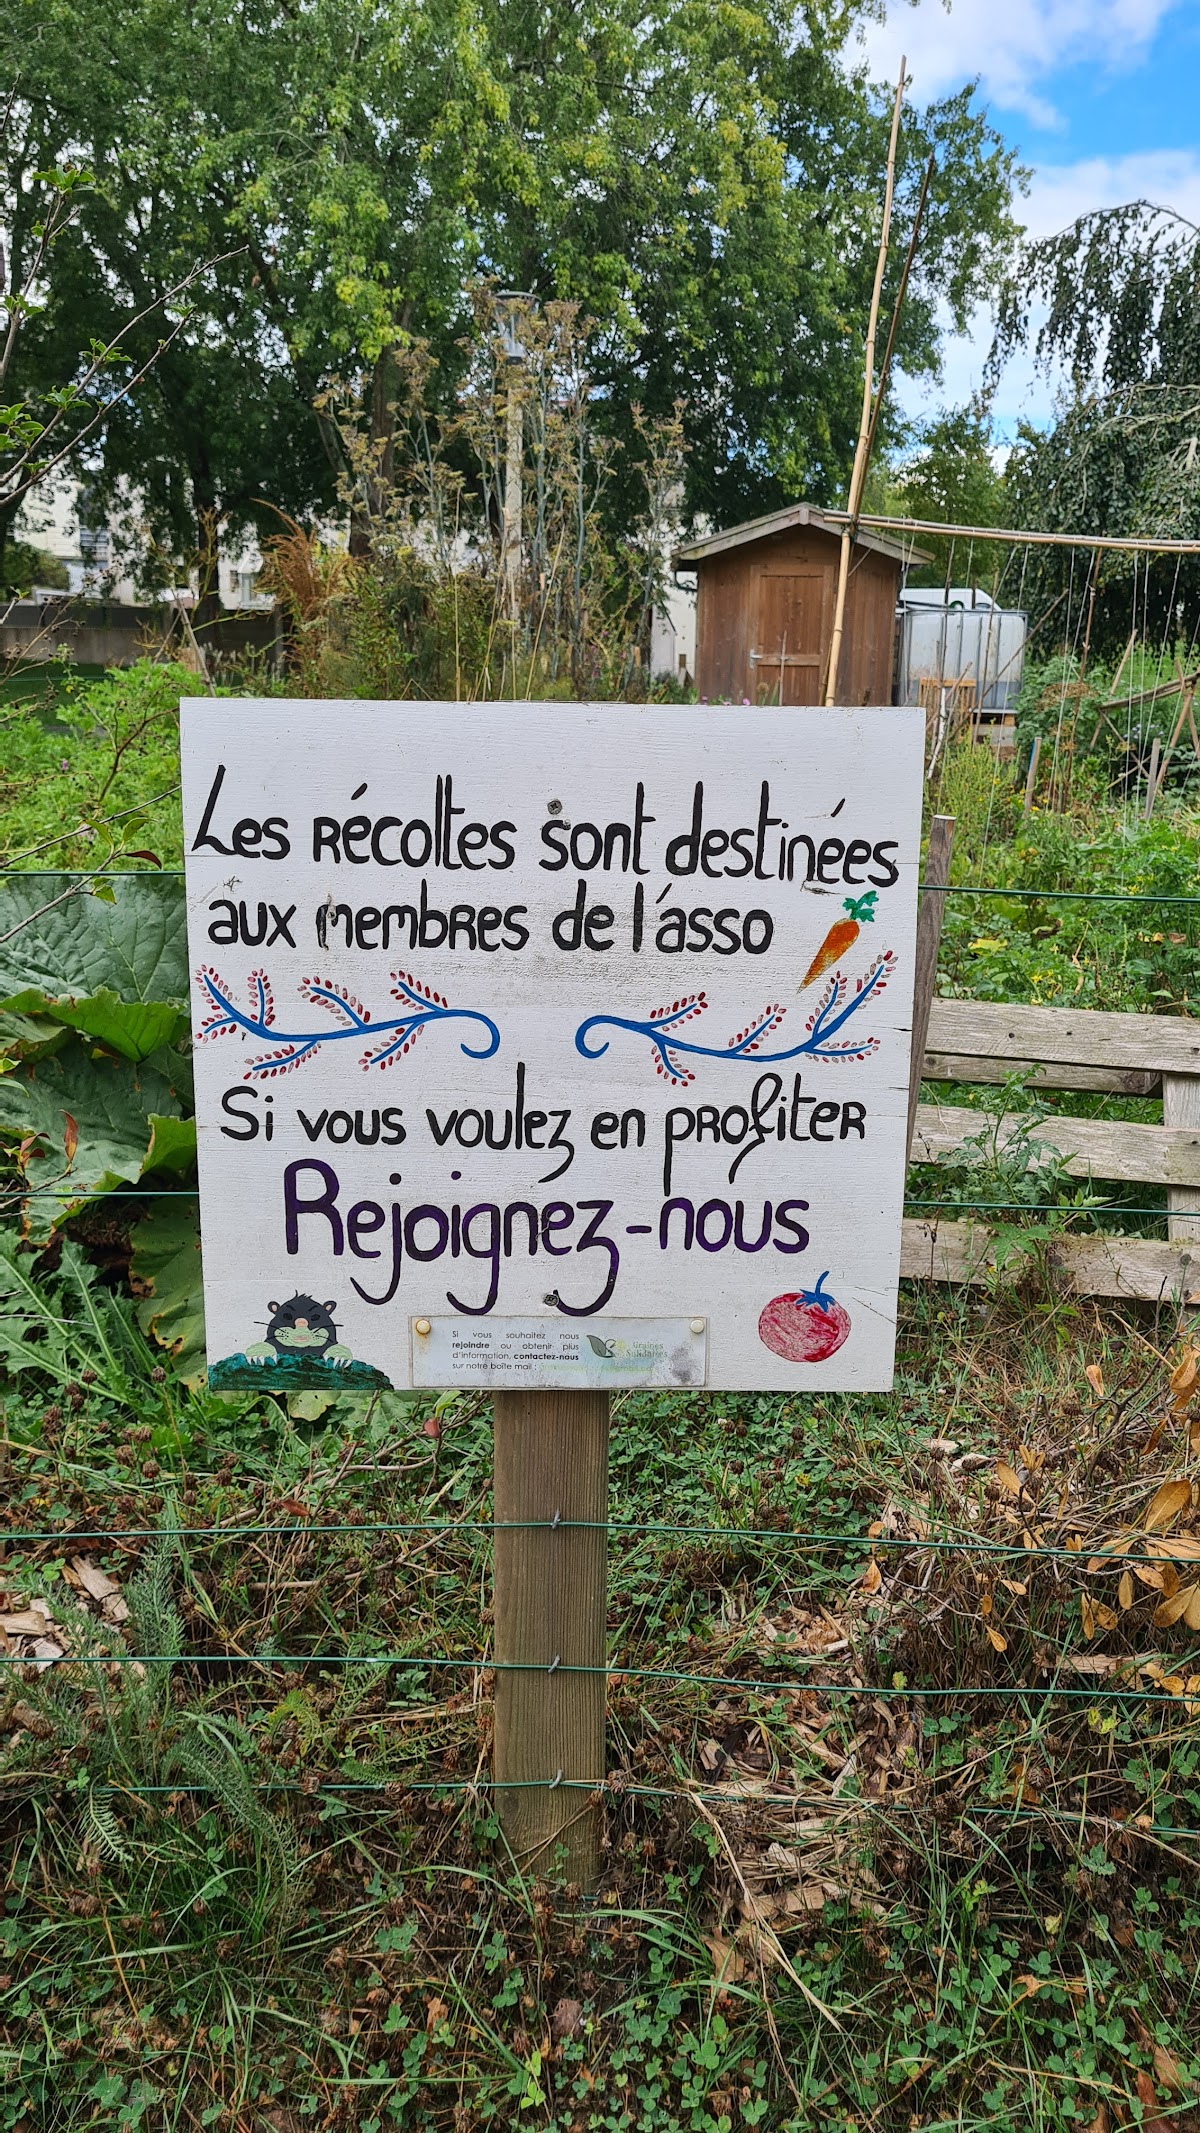 Les récoltes sont destinées
aux membres de l'asso
Si vous voulez en profiter
Rejoignez-nous
Si vous souhaitez nous
rejoindre ou obtenir plus
d'information, contactez-nous
sur notre boîte mail :
Graines
Solidaires